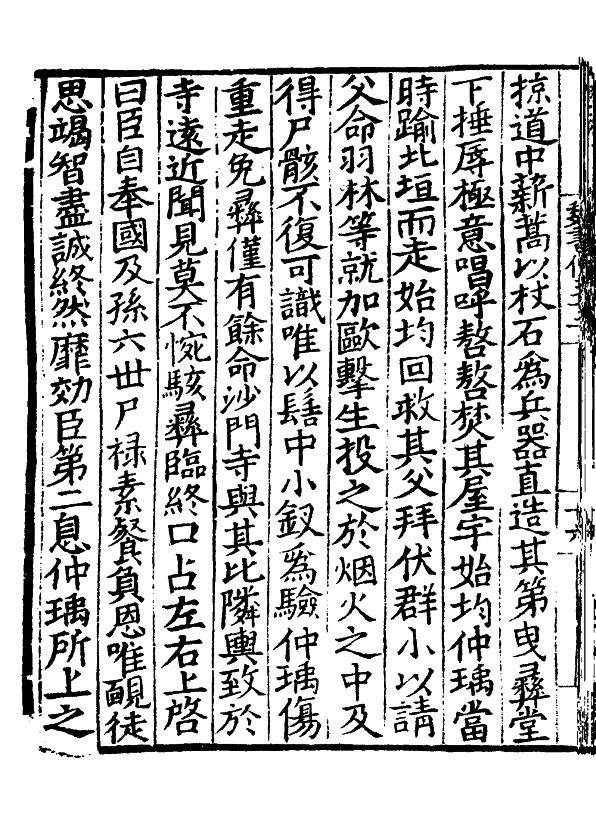 掠道中薪蒿以杖石爲兵器直造其第曳彝堂
下捶辱極意唱呼嗸嗸焚其屋宇始均仲瑀當
時踰北垣而走始均回救其父拜伏群小以請
父命羽林等就加歐擊生投之於烟火之中及
得尸骸不復可識唯以髻中小釵爲驗仲瑀傷
重走免彝僅有餘命沙門寺與其比隣輿致於
寺遠近聞見莫不惋駭彝臨終口占左右上啓
曰臣自奉國及孫六世尸禄素餐負恩唯靦徒
思竭智盡誠終然靡効臣第二息仲瑀所上之